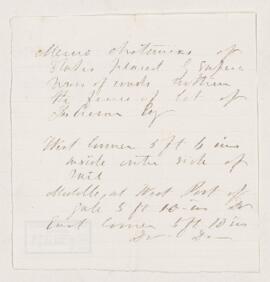 Memo distances of
Stakes placed
of roads within
the fence of lot of
Esq
West Corner 5 ft 6 ins
inside outer side of
rail
Middle, at West Post of
gate 5 ft 10 ins Do
East Corner 5 ft 10 ins
Do Do